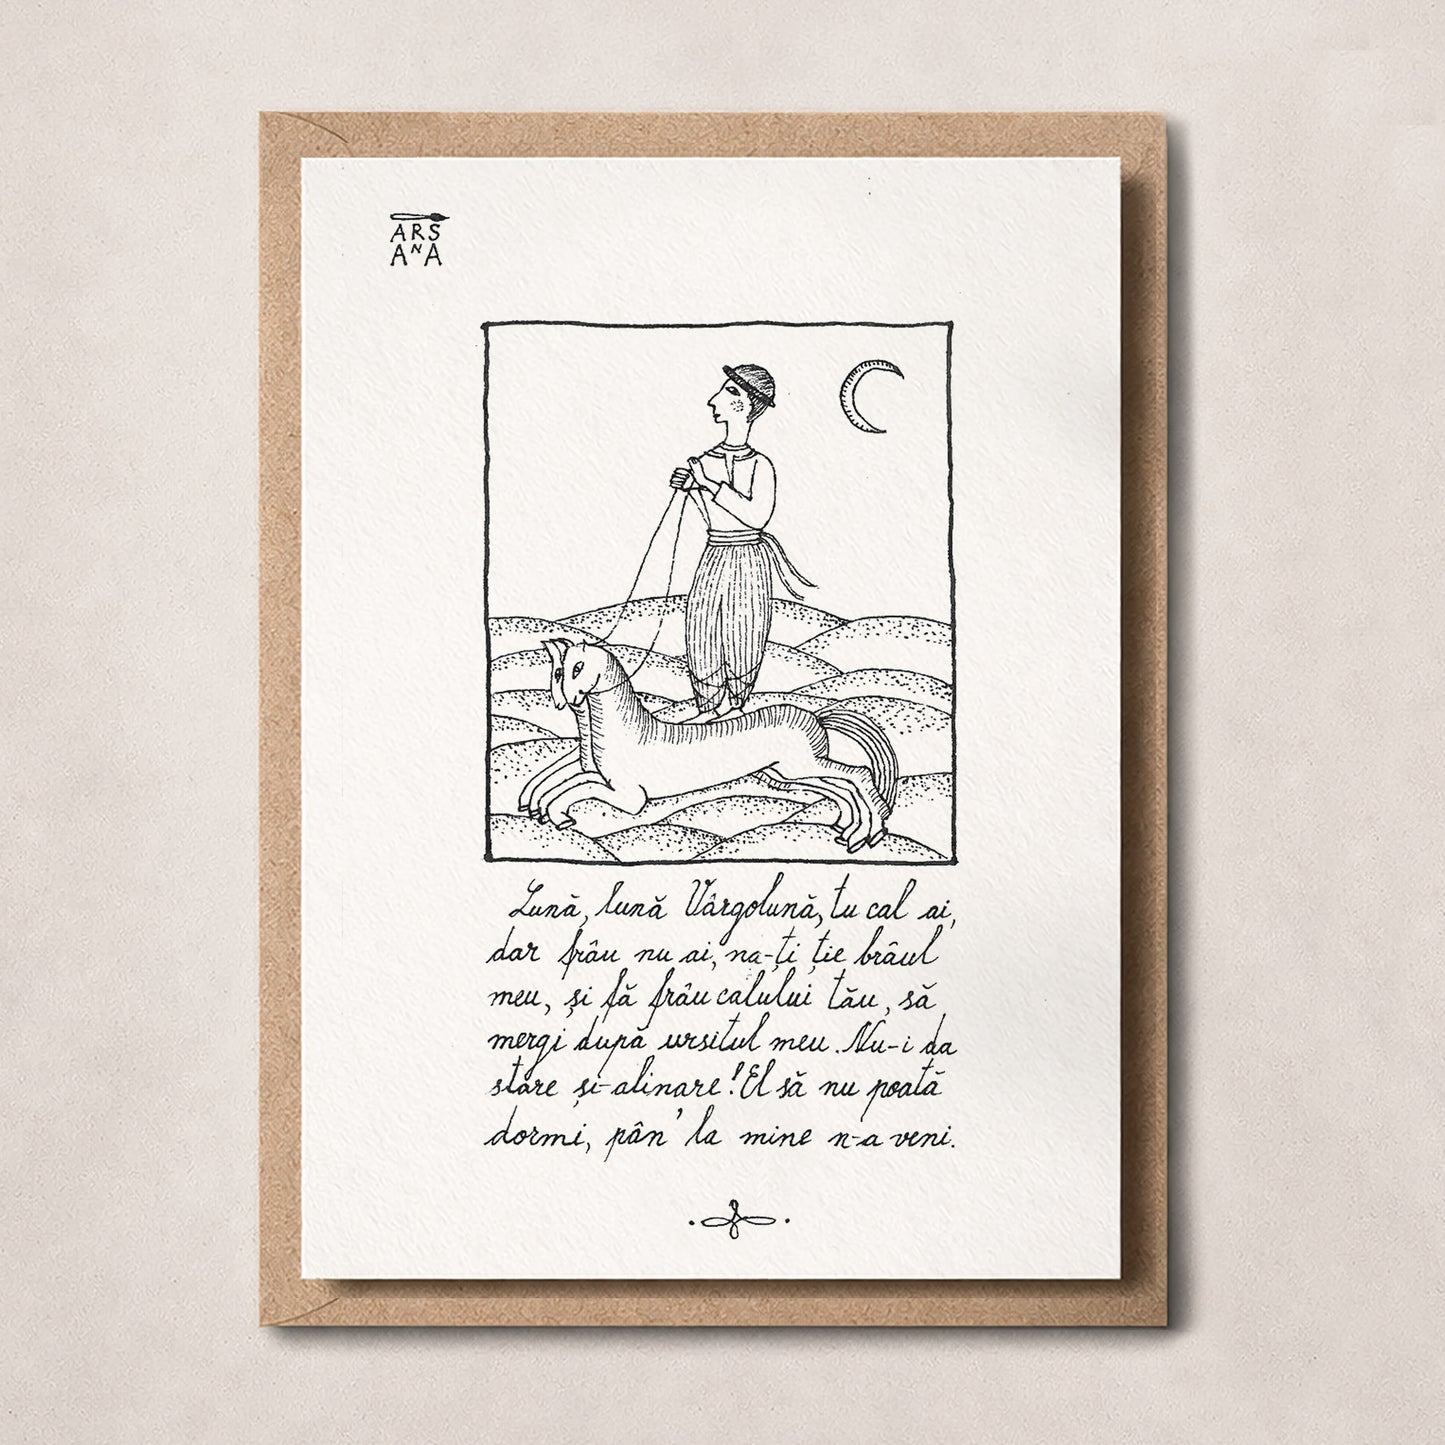 ARS
ANA
Lună, lună Vârgolună, tu cal ai,
dar frâu nu ai, na-ți ție brâul
meu, și fă frâu calului tău, să
mergi după ursitul meu. Nu-i da
stare și-alinare! El să nu poată
dormi, pân' la mine n-a veni.